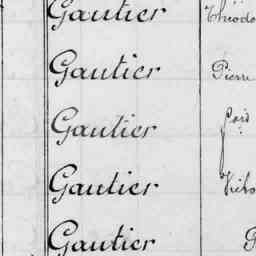 Gautier Théodo
Gautier Pierre
Gautier
Gautier
Gautier